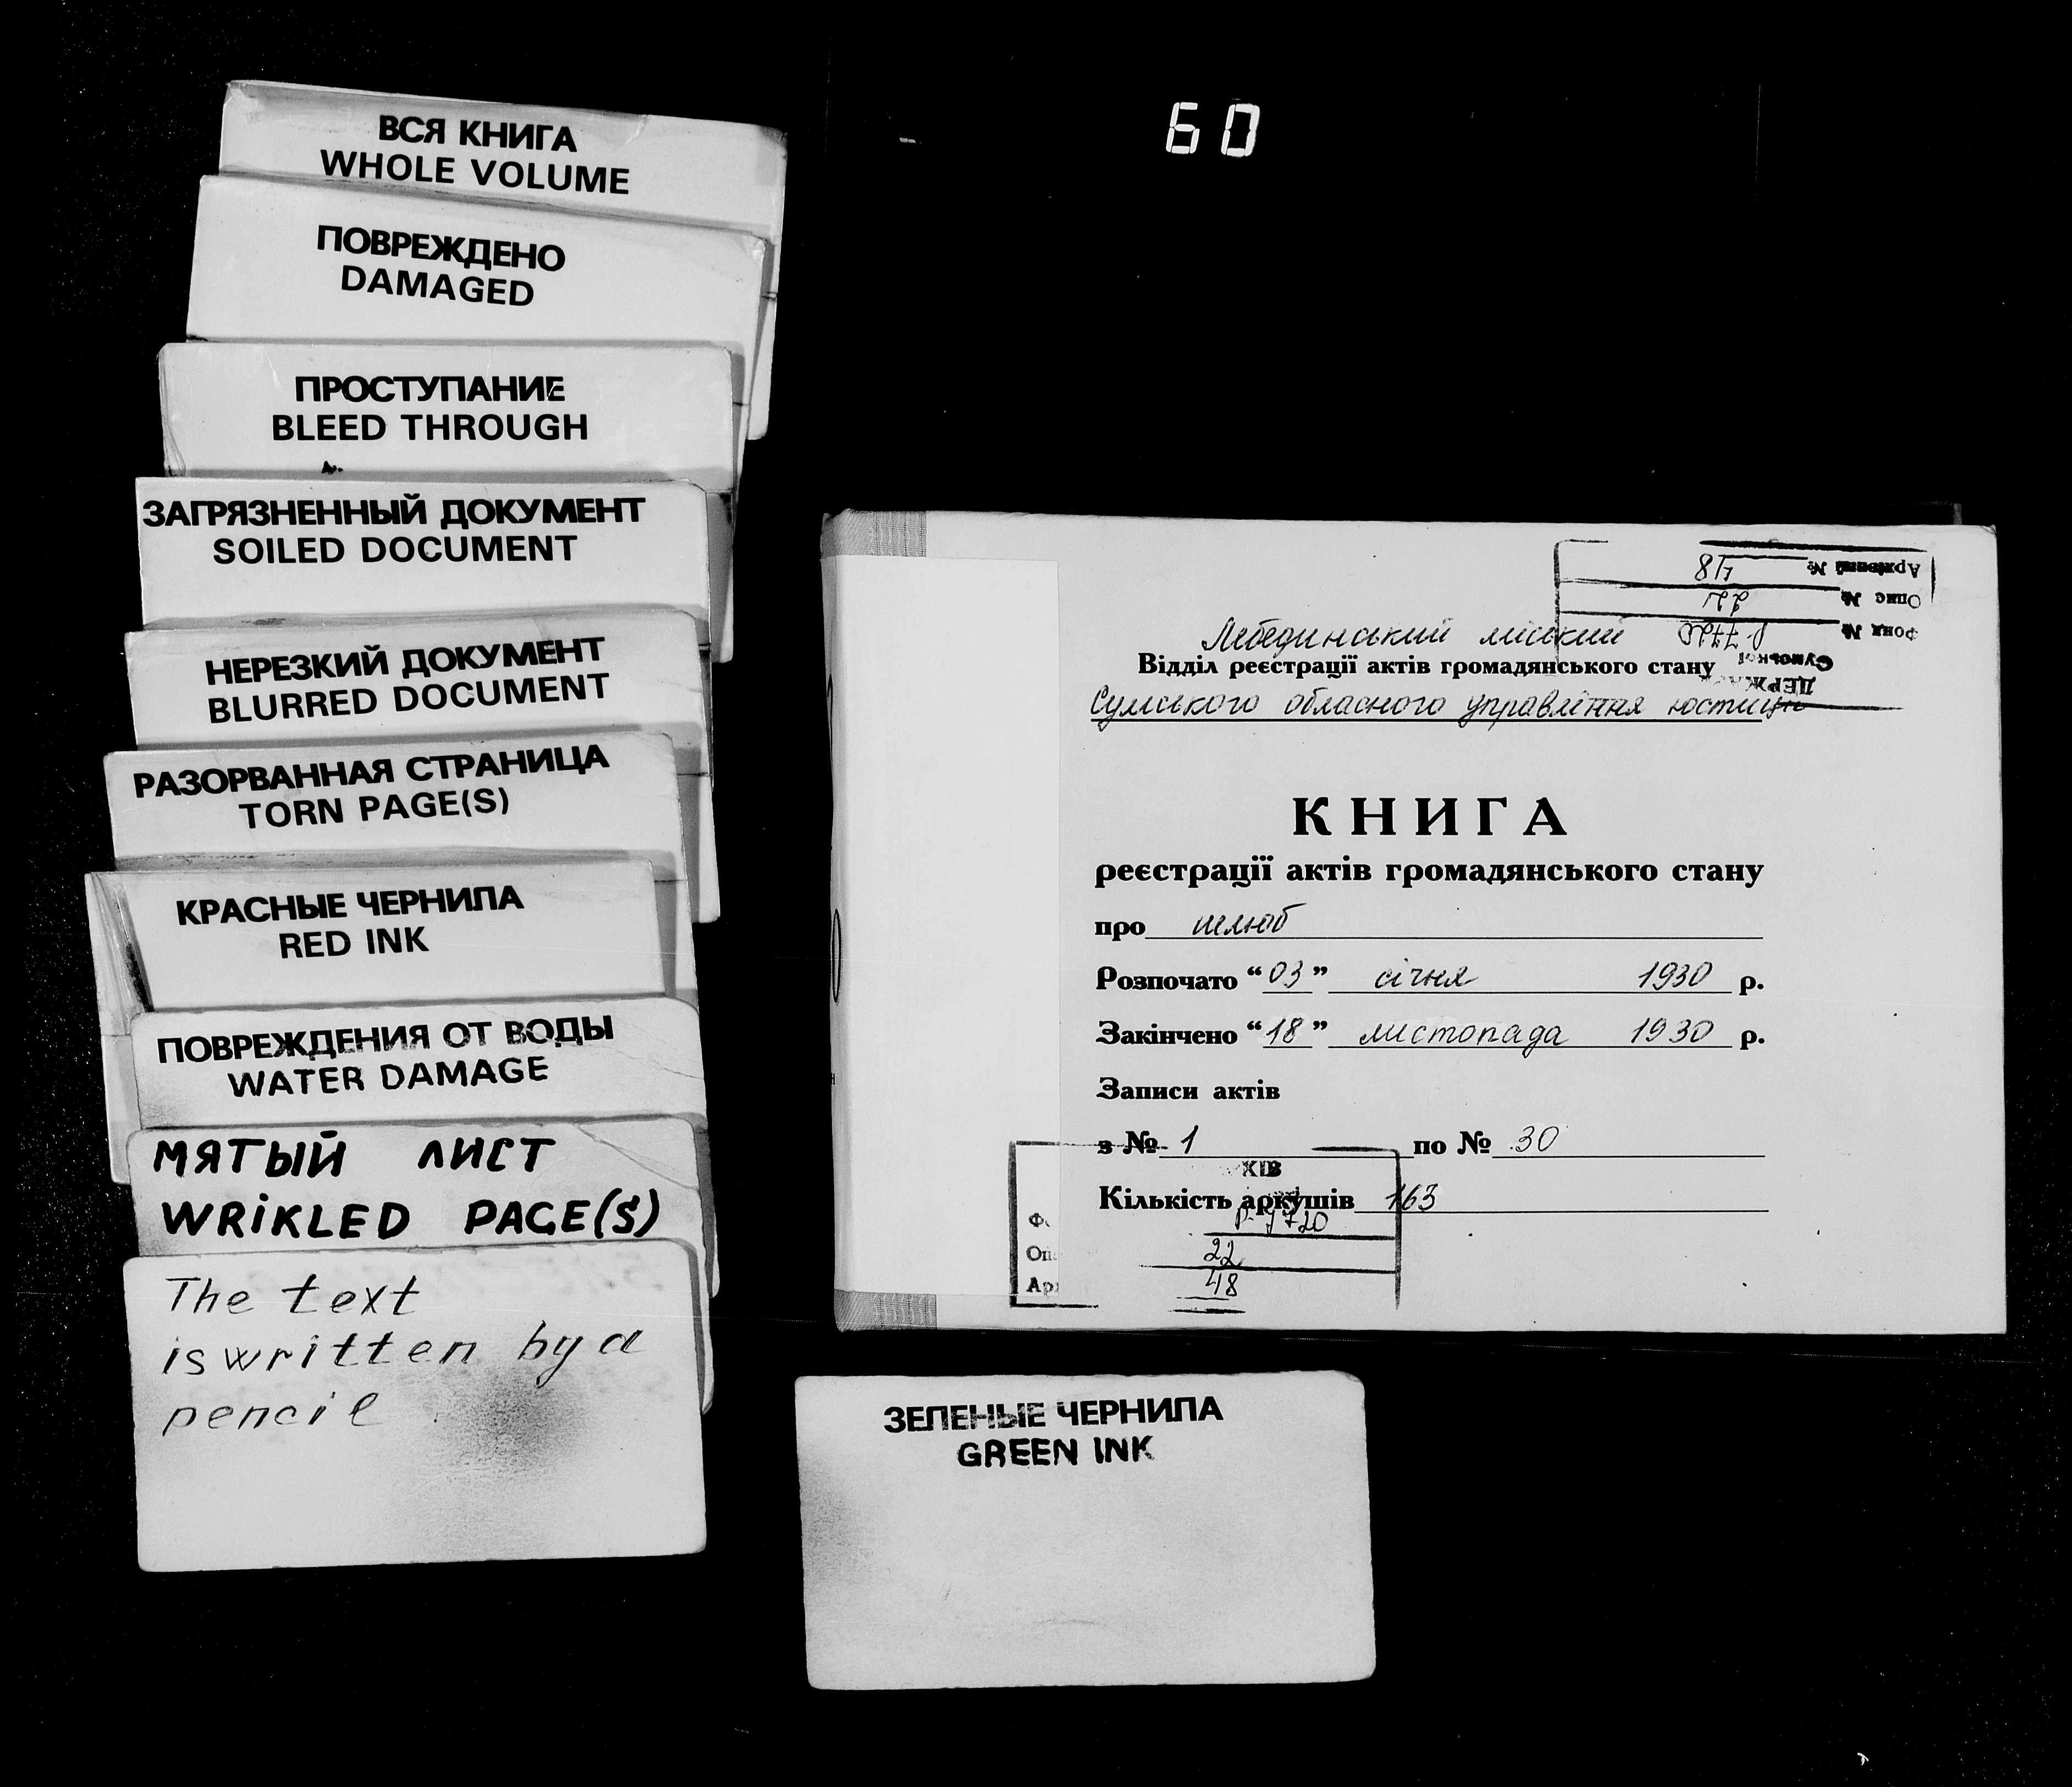 60
ВСЯ КНИГА
WHOLE VOLUME
ПОВРЕЖДЕНО
DAMAGED
ПРОСТУПАНИЕ
BLEED THROUGH
ЗАГРЯЗНЕННЫЙ ДОКУМЕНТ
SOILED DOCUMENT
НЕРЕЗКИЙ ДОКУМЕНТ
BLURRED DOCUMENT
РАЗОРВАННАЯ СТРАНИЦА
TORN PAGE(S)
КРАСНЫЕ ЧЕРНИЛА
RED INK
ПОВРЕЖДЕНИЯ ОТ ВОДЫ
WATER DAMAGE
МЯТЫЙ ЛИСТ
WRIKLED PAGE(S)
The text
is written by a
pencil
Фонд № Р-7720
Опис № 22
Архівний № 48
Лебединський міський
Відділ реєстрації актів громадянського стану
Сумського обласного управління юстиції
КНИГА
реєстрації актів громадянського стану
про шлюб
Розпочато “03” січня 1930 р.
Закінчено “18” листопада 1930 р.
Записи актів
з № 1 по № 30
Кількість аркушів 163
Р-7720
22
48
ЗЕЛЕНЫЕ ЧЕРНИЛА
GREEN INK